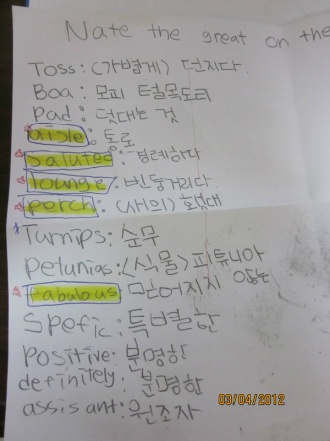 Nate the great on the
Toss: (가볍게) 던지다.
Boa: 모피 털목도리
Pad: 덧대는 것
aisle: 통로
saluted: 경례하다
lounge: 빈둥거리다.
perch: (새의) 횃대
Turnips: 순무
petunias: (식물) 피튜니아
fabulous: 믿어지지 않는
Spefic: 특별한
positive: 분명한
definitely: 분명한
assisant: 원조자
03/04/2012